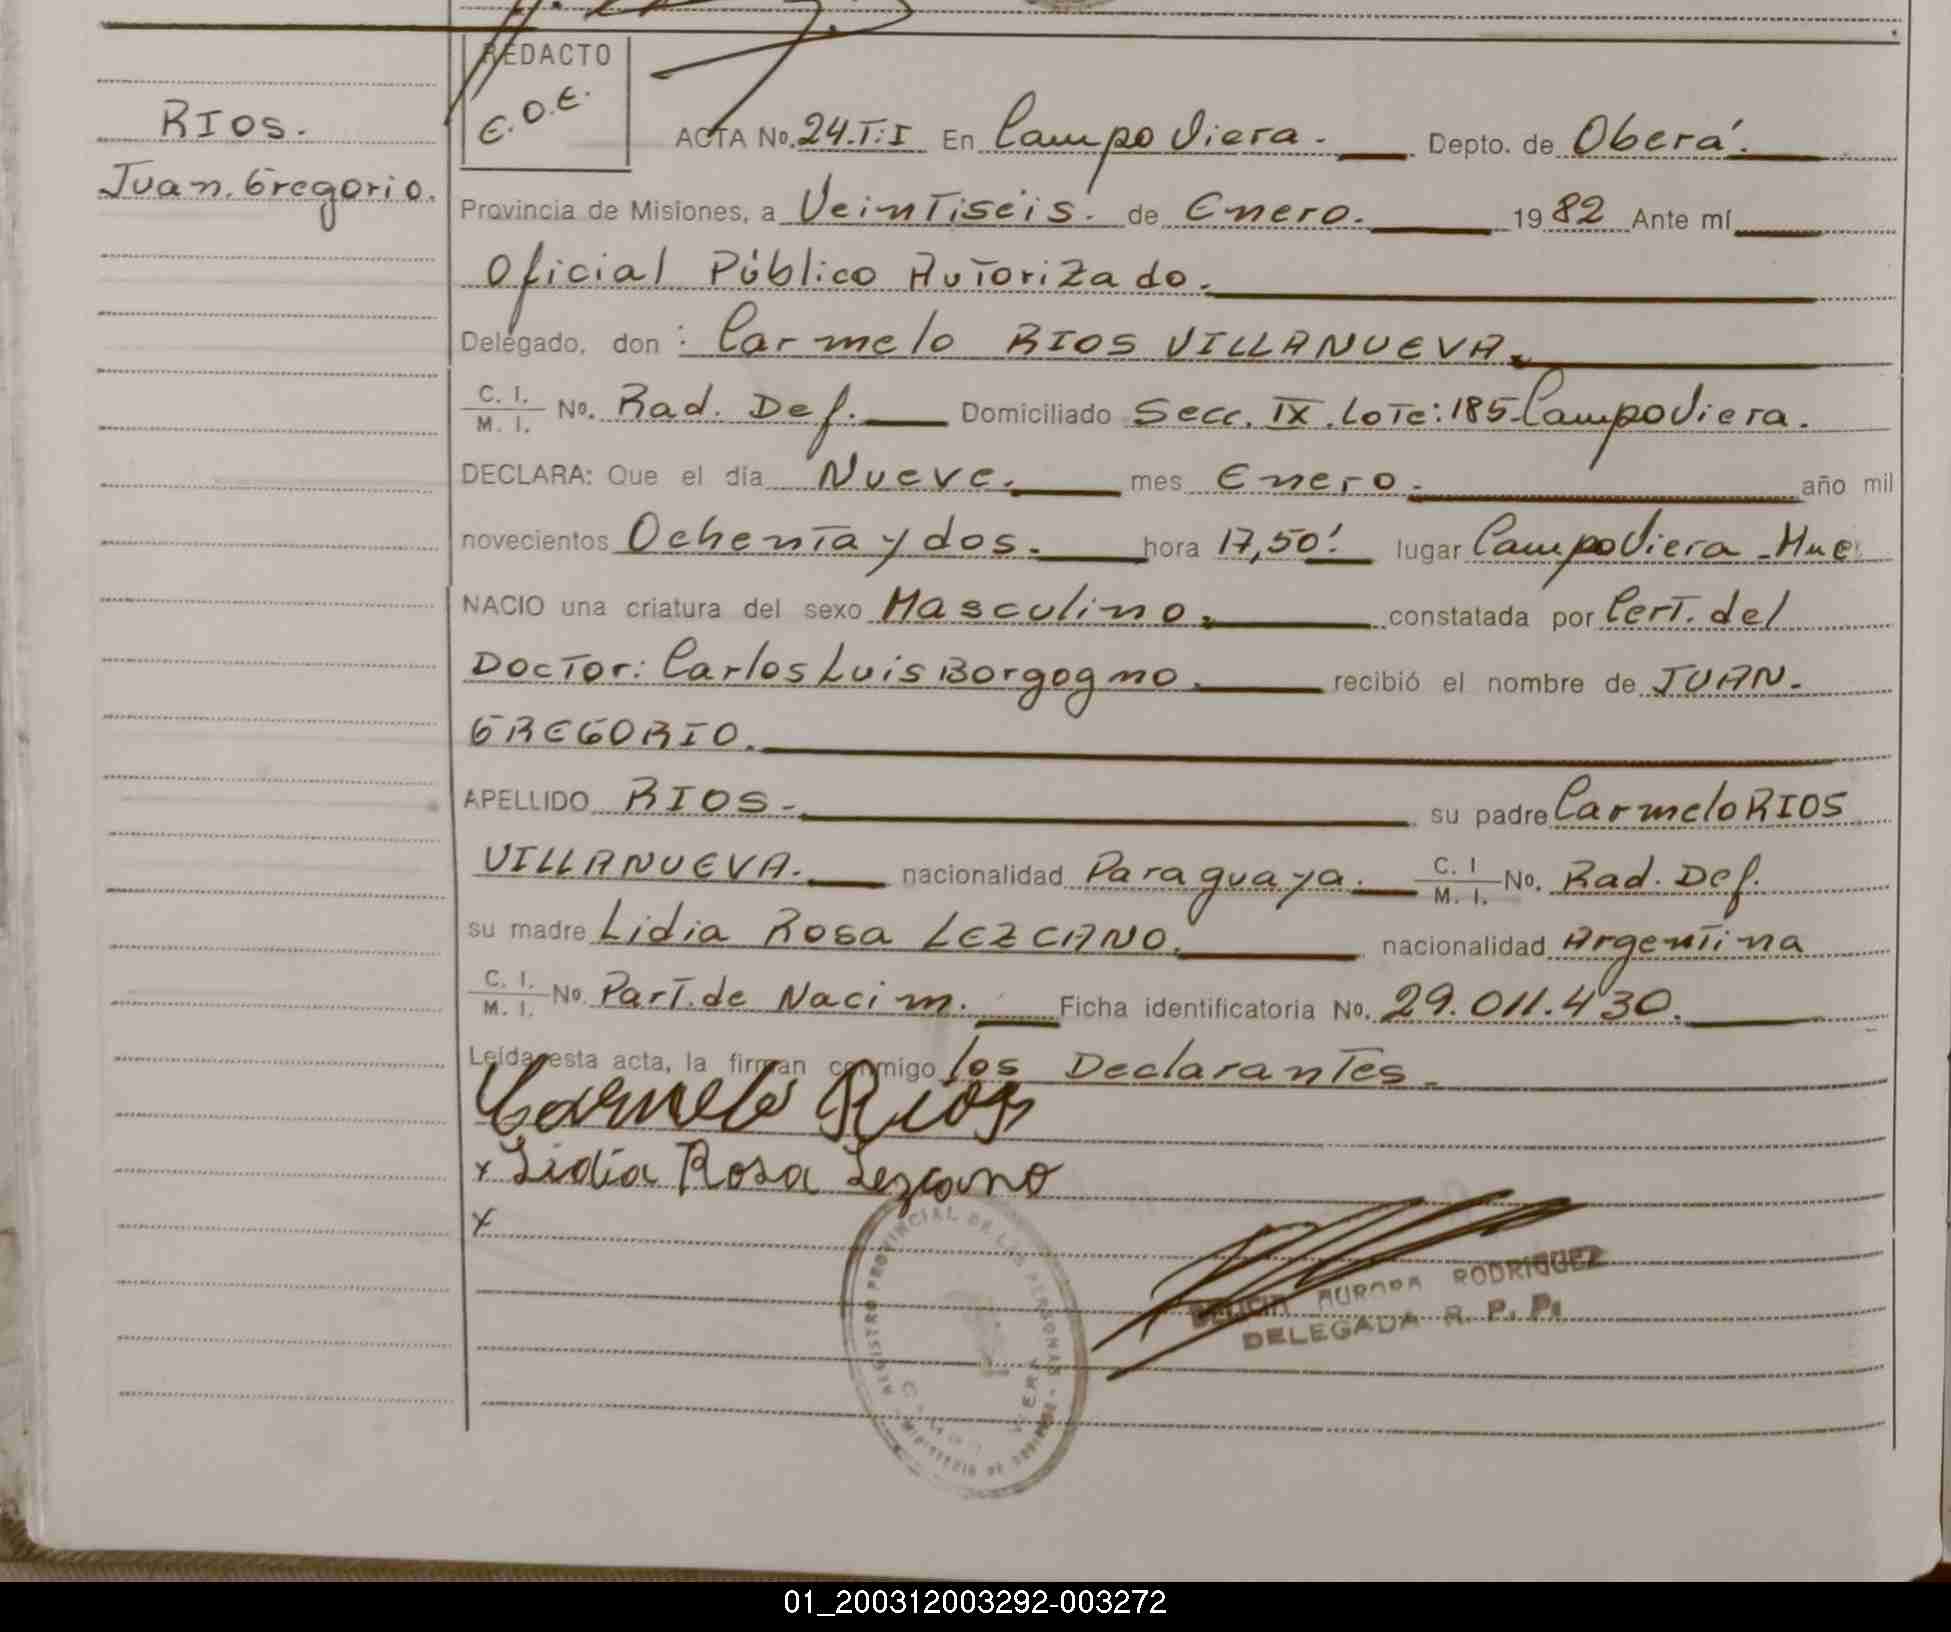 REDACTO
E.O.E.
RIOS.
Juan. Gregorio.
ACTA No. 24.T:I En Campo Viera. Depto. de Oberá.
Provincia de Misiones, a Veintiseis. de Enero. 1982 Ante mí
Oficial Público Autorizado.
Delegado, don : Carmelo RIOS VILLANUEVA.
C. I. / M. I. No. Rad. Def. Domiciliado Secc. IX. Lote: 185-Campo Viera.
DECLARA: Que el día Nueve. mes Enero. año mil
novecientos Ochenta y dos. hora 17,50! lugar Campo Viera - Mnes
NACIO una criatura del sexo Masculino. constatada por Cert. del
Doctor: Carlos Luis Borgogno. recibió el nombre de JUAN.
GREGORIO.
APELLIDO RIOS. su padre Carmelo RIOS
VILLANUEVA. nacionalidad Paraguaya. C. I / M. I. No. Rad. Def.
su madre Lidia Rosa LEZCANO. nacionalidad Argentina
C. I. / M. I. No. Part. de Nacim. Ficha identificatoria No. 29.011.430.
Leída esta acta, la firman conmigo los Declarantes.
Carmelo Rios
x Lidia Rosa Lezcano
x
REGISTRO PROVINCIAL DE LAS PERSONAS - MINISTERIO DE GOBIERNO
AURORA RODRIGUEZ
DELEGADA R. P. P.
01_200312003292-003272